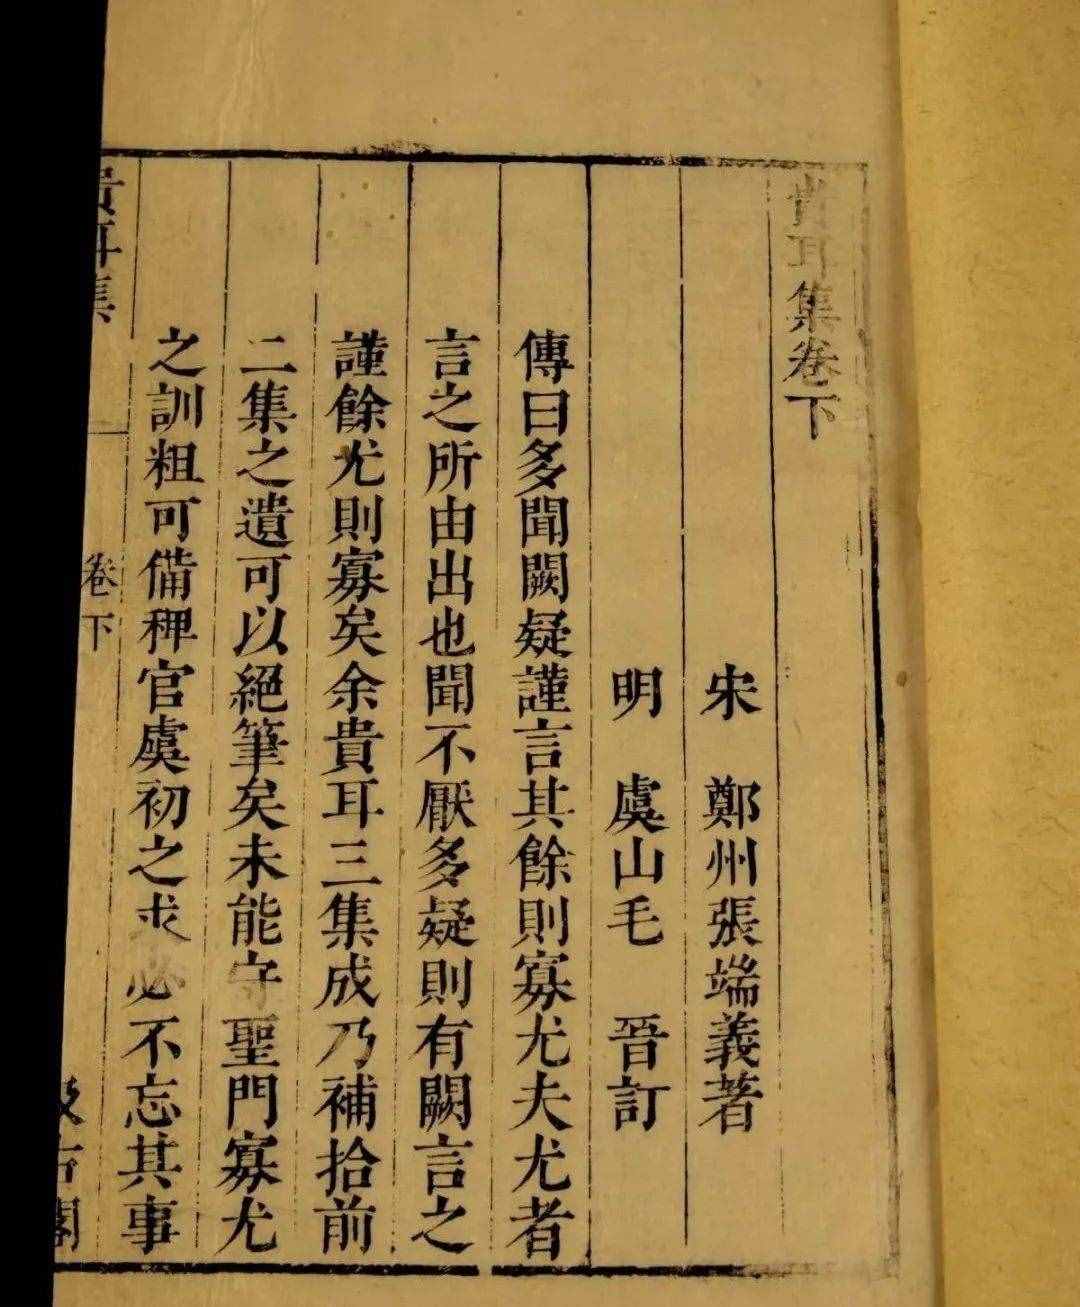 貴耳集卷下
宋 鄭州張端義著
明 虞山毛 晉訂
傳曰多聞闕疑謹言其餘則寡尤夫尤者
言之所由出也聞不厭多疑則有闕言之
謹餘尤則寡矣余貴耳三集成乃補拾前
二集之遺可以絕筆矣未能守聖門寡尤
之訓粗可備稗官虞初之求必不忘其事
貴耳集 卷下 汲古閣